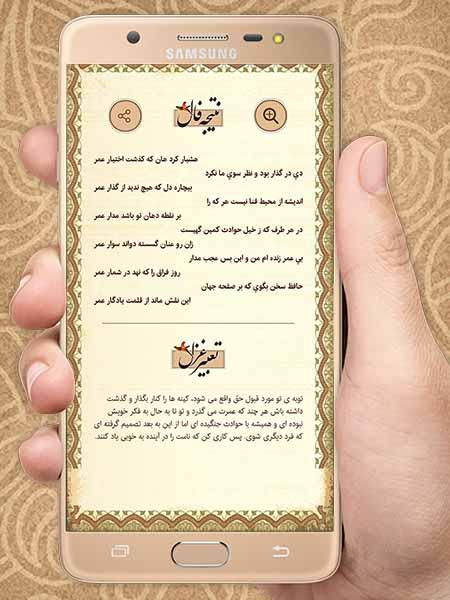 SAMSUNG
نتیجه فال
هشیار گرد هان که گذشت اختیار عمر
دی در گذار بود و نظر سوی ما نکرد
بیچاره دل که هیچ ندید از گذار عمر
اندیشه از محیط فنا نیست هر که را
بر نقطه دهان تو باشد مدار عمر
در هر طرف که ز خیل حوادث کمین گهیست
زان رو عنان گسسته دواند سوار عمر
بی عمر زنده ام من و این بس عجب مدار
روز فراق را که نهد در شمار عمر
حافظ سخن بگوی که بر صفحه جهان
این نقش ماند از قلمت یادگار عمر
تعبیر غزل
توبه ی تو مورد قبول حق واقع می شود، کینه ها را کنار بگذار و گذشت
داشته باش هر چند که عمرت می گذرد و تو تا به حال به فکر خویش
نبوده ای و همیشه با حوادث جنگیده ای اما از این به بعد تصمیم گرفته ای
که فرد دیگری شوی. پس کاری کن که نامت را در آینده به خوبی یاد کنند.